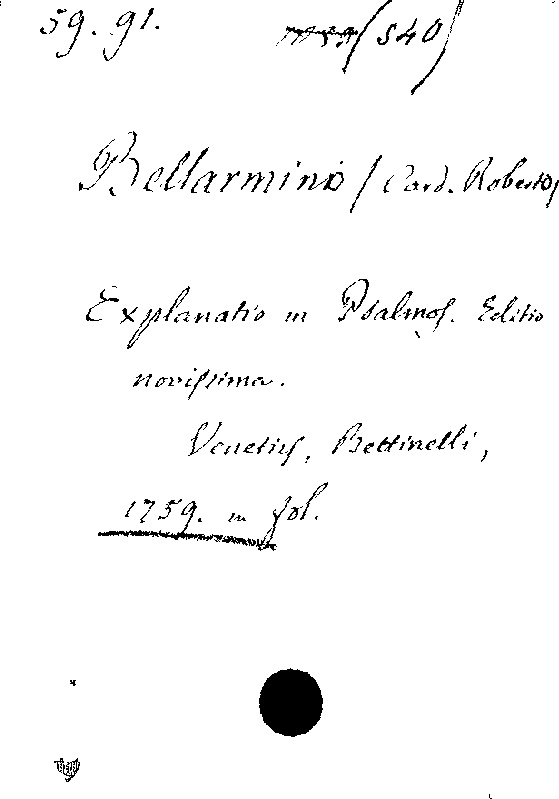 59. 91. (S40)
Bellarmino / Card. Roberto/
Explanatio in Psalmos. Editio
novissima.
Venetiis, Bettinelli,
1759. in fol.